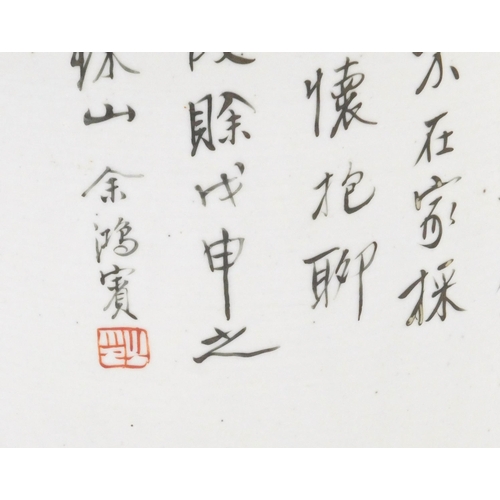 在家採
懷抱聊
賒戊申之
山余鴻賓